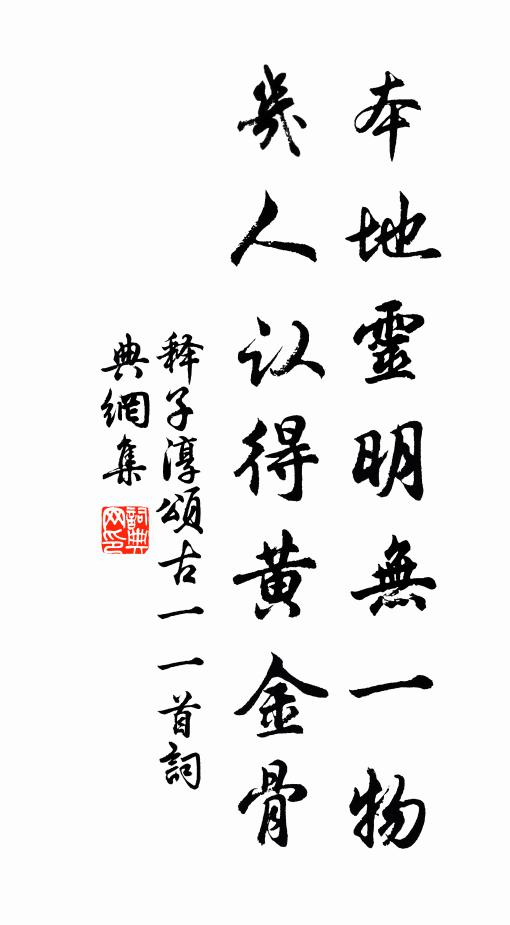 本地靈明無一物
幾人认得黄金骨
释子淳頌古一一首詞
典網集
詞典网印